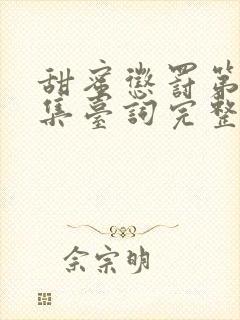 甜蜜懲罰第
集臺詞完整
余宗明